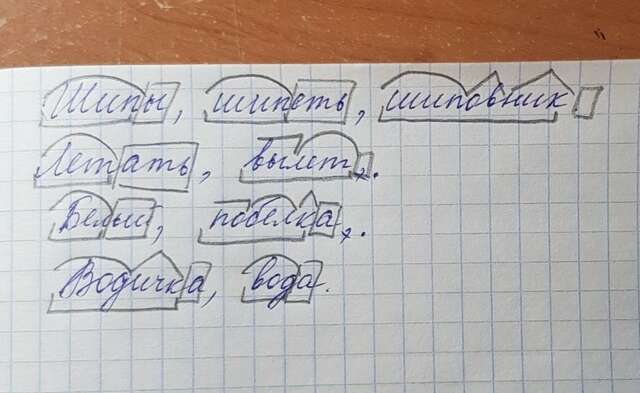 Шипы, шипеть, шиповник
Летать, вылет,.
Белый, побелка,.
Водичка, вода.